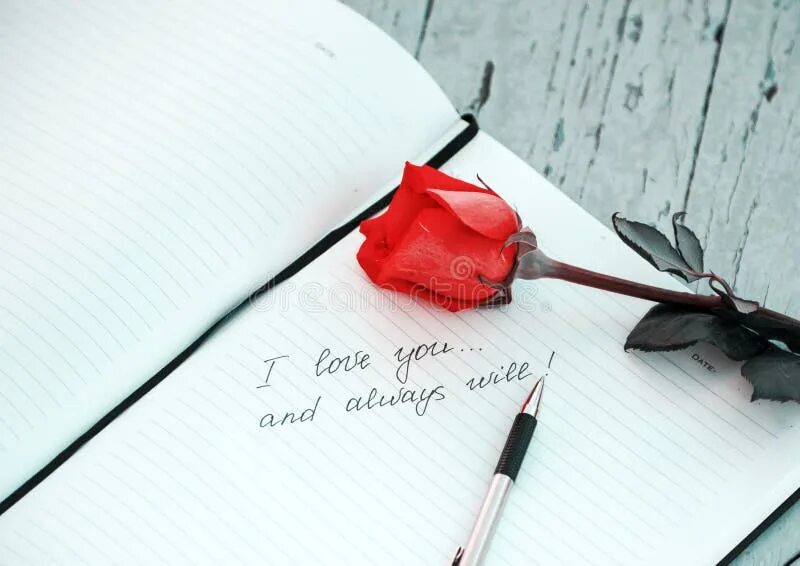 DATE:
I love you...
and always will!
DATE:
dreamstime